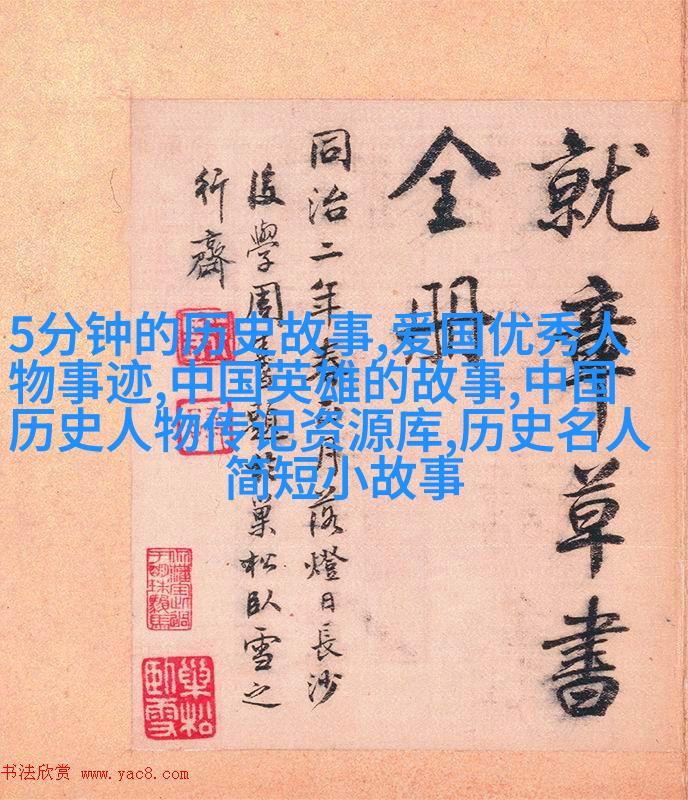 5分钟的历史故事,爱国优秀人
物事迹,中国英雄的故事,中国
历史人物传记资源库,历史名人
简短小故事
就章草書
全册
同治二年春月落燈日長沙
後學周題巢松臥雪之
行齋
巢松
臥雪
书法欣赏 www.yac8.com